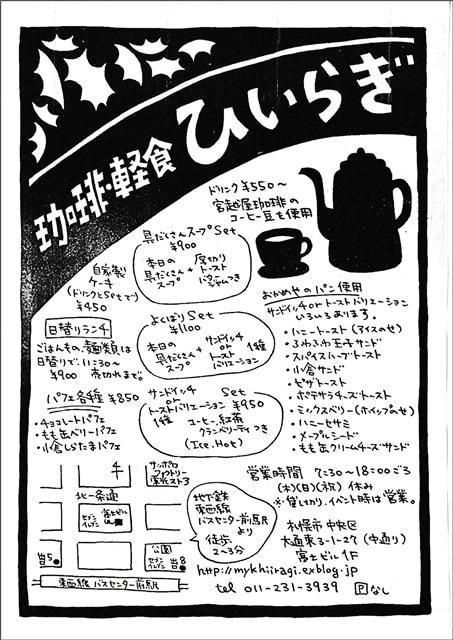 珈琲・軽食 ひいらぎ
ドリンク ¥550〜
宮越屋珈琲の
コーヒー豆を使用
具だくさんスープSet
¥900
本日の
具だくさん
スープ
+
厚切り
トースト
バター
ジャムつき
自家製
ケーキ
(ドリンクとSetで)
¥450
よくばりSet
¥1100
本日の
具だくさん
スープ
+
サンドイッチ
or
トースト
バリエーション
1種
日替りランチ
ごはんもの、麺類は
日替りで。11:30〜
¥900 売切れまで。
サンドイッチ
or
トーストバリエーション
1種
Set
¥950
コーヒー、紅茶
クランベリーティつき
(Ice.Hot)
パフェ各種 ¥850
・チョコレートパフェ
・もも缶ベリーパフェ
・小倉しらたまパフェ
おかめやのパン使用
サンドイッチorトーストバリエーション
いろいろあります。
・ハニートースト(アイスのせ)
・ふわふわ玉子サンド
・スパイスハーブトースト
・小倉サンド
・ピザトースト
・ポテサラチーズトースト
・ミックスベリー(ホイップのせ)
・ハニーセサミ
・メープルシード
・もも缶クリームチーズサンド
サッポロ
ファクトリー
北一条通
セブン
イレブン
富士ビル
公園
セブン
イレブン
出5
出8
東西線 バスセンター前駅
地下鉄
東西線
バスセンター前駅
より
徒歩
2〜3分
営業時間 7:30〜18:00ごろ
(木)(日)(祝) 休み
※貸しきり、イベント時は営業。
札幌市中央区
大通東3-1-27 (中通り)
富士ビル1F
http://mykhiiragi.exblog.jp
tel 011-231-3939 Pなし